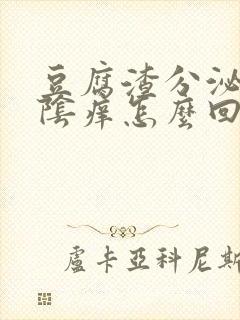 豆腐渣分泌
陰痒怎麼回
盧卡亞科尼斯